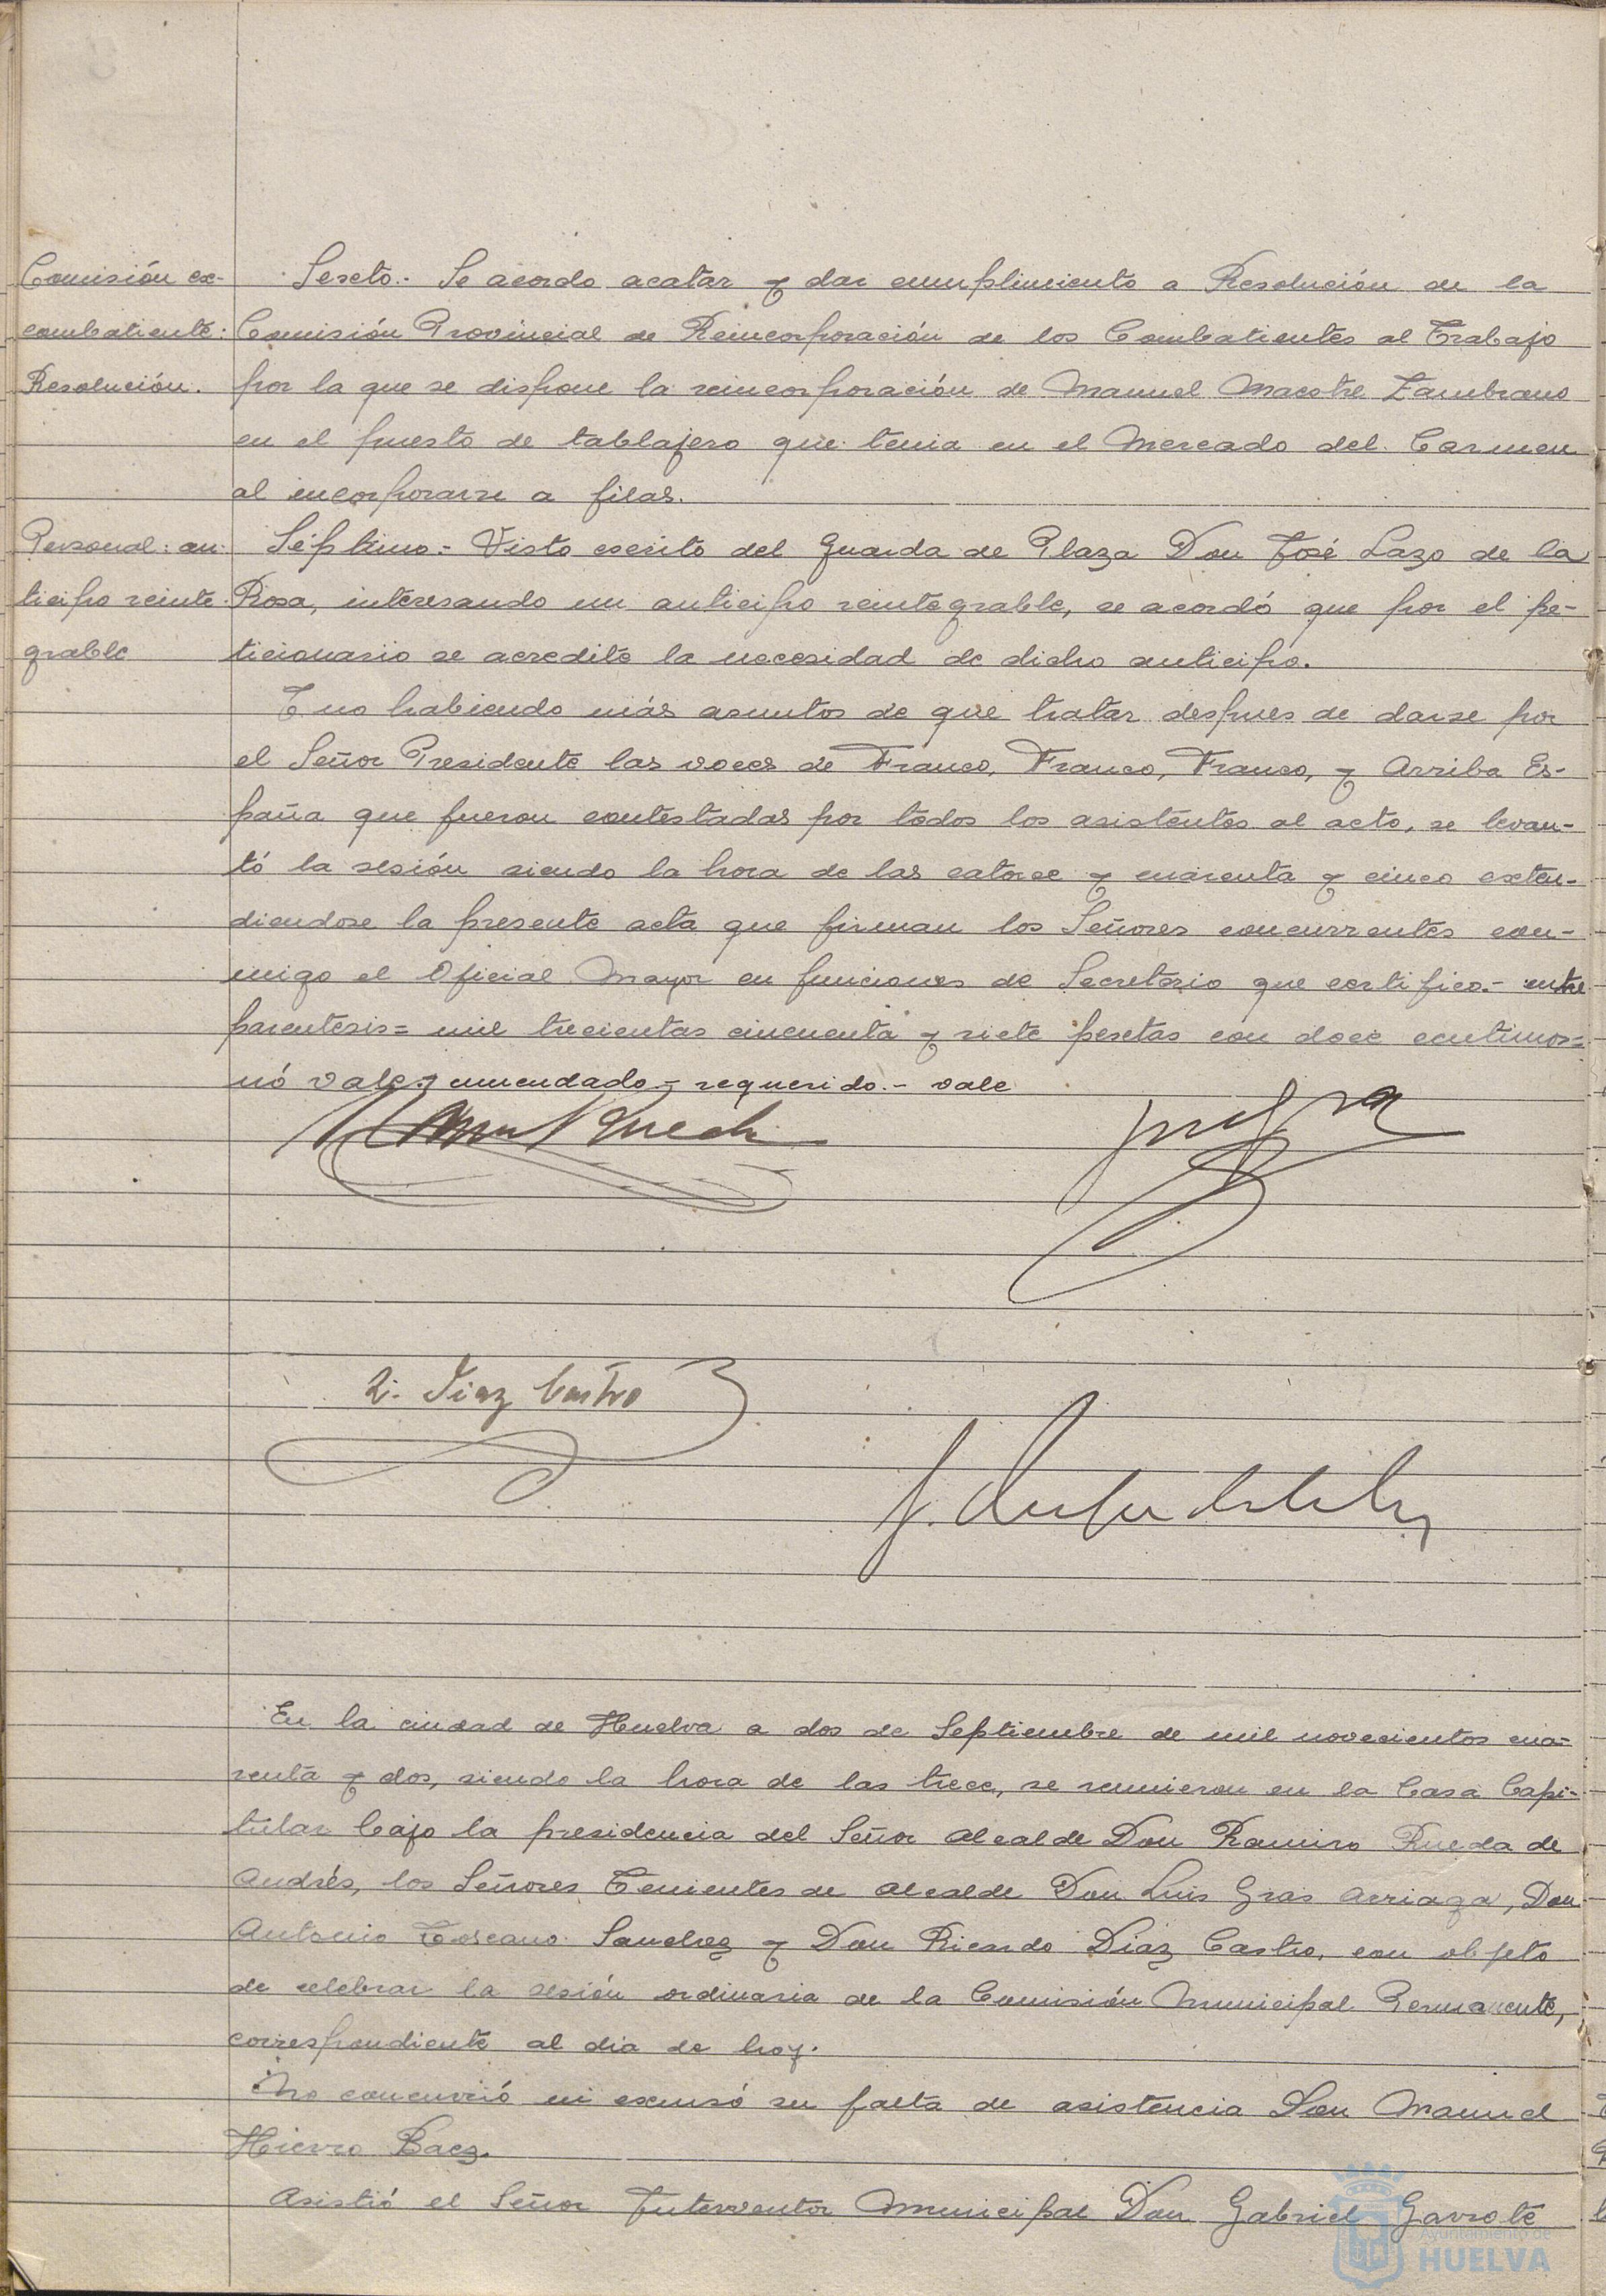 Comisión ex-
combatiente:
Resolución.
Sexto.- Se acordo acatar y dar cumplimiento a Resolución de la
Comisión Provincial de Reincorporación de los Combatientes al Trabajo
por la que se dispone la reincorporación de Manuel Maestre Zambrano
en el puesto de tablajero que tenia en el Mercado del Carmen
al incorporarse a filas.
Personal: an-
ticipo reinte-
grable
Séptimo.- Visto escrito del Guarda de Plaza Don José Lazo de la
Rosa, interesando un anticipo reintegrable, se acordó que por el pe-
ticionario se acredite la necesidad de dicho anticipo.
Y no habiendo más asuntos de que tratar despues de darse por
el Señor Presidente las voces de Franco, Franco, Franco, y Arriba Es-
paña que fueron contestadas por todos los asistentes al acto, se levan-
tó la sesión siendo la hora de las catorce y cuarenta y cinco exten-
diendose la presente acta que firman los Señores concurrentes con-
migo el Oficial Mayor en funciones de Secretario que certifico.- entre
parentesis= mil trecientas cincuenta y siete pesetas con doce centimos=
nó vale.- enmendado - requerido.- vale
R. Diaz Castro
En la ciudad de Huelva a dos de Septiembre de mil novecientos cua-
renta y dos, siendo la hora de las trece, se reunieron en la Casa Capi-
tular bajo la presidencia del Señor Alcalde Don Ramiro Rueda de
Andrés, los Señores Tenientes de Alcalde Don Luis Gras Arriaga, Don
Antonio Toscano Sanchez y Don Ricardo Diaz Castro, con objeto
de celebrar la sesión ordinaria de la Comisión Municipal Permanente,
correspondiente al dia de hoy.
No concurrió ni excusó su falta de asistencia Don Manuel
Hierro Baez.
Asistió el Señor Interventor Municipal Don Gabriel Garrote
Ayuntamiento de
HUELVA